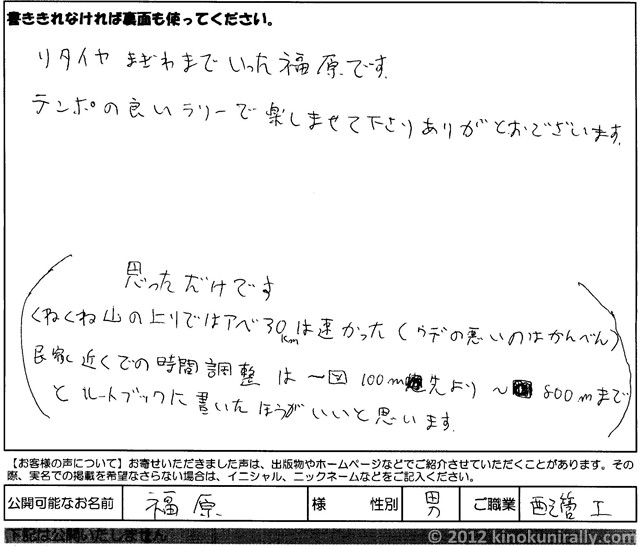 書ききれなければ裏面も使ってください。
リタイヤ まぎわまで いった 福原です。
テンポの良いラリーで 楽しませて下さりありがとおございます。
思っただけです
くねくね山の上りではアベ30kmは速かった(ウデの悪いのはかんべん)
民家近くでの時間調整は〜図 100m先より〜 800mまで
とルートブックに書いたほうがいいと思います。
【お客様の声について】お寄せいただきました声は、出版物やホームページなどでご紹介させていただくことがあります。その
際、実名での掲載を希望なさらない場合は、イニシャル、ニックネームなどをご記入ください。
公開可能なお名前 福原 様 性別 男 ご職業 配管工
下記は公開いたしません
© 2012 kinokunirally.com